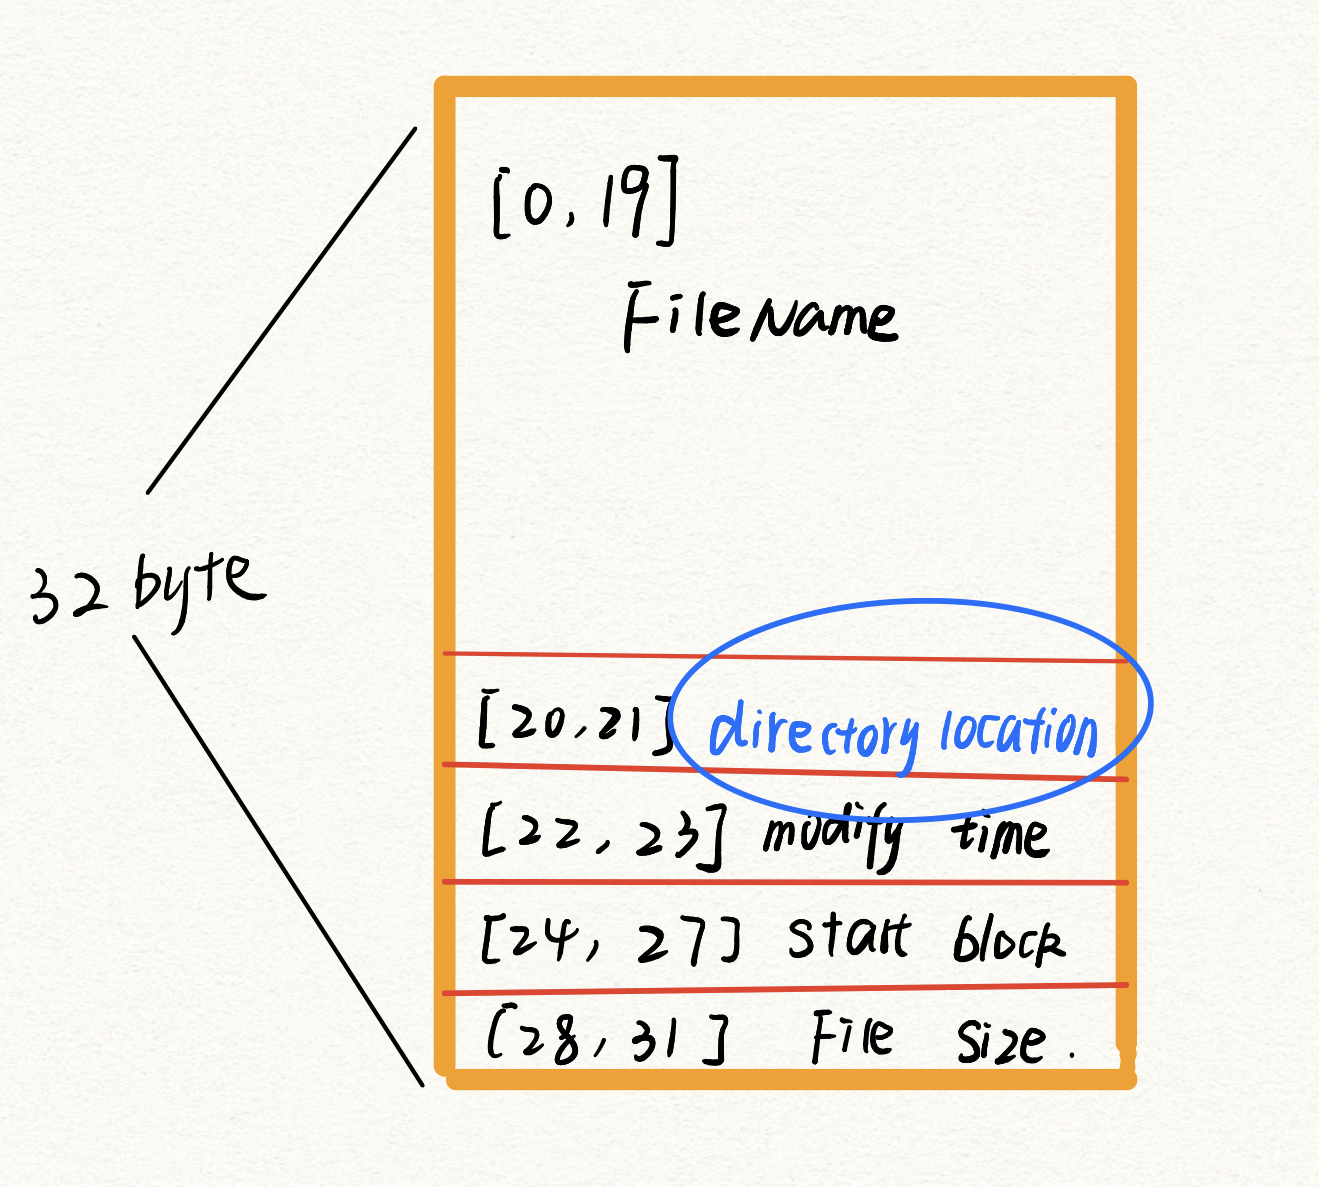 [0, 19]
FileName
32 byte
[20, 21] directory location
[22, 23] modify time
[24, 27] start block
[28, 31] File Size.